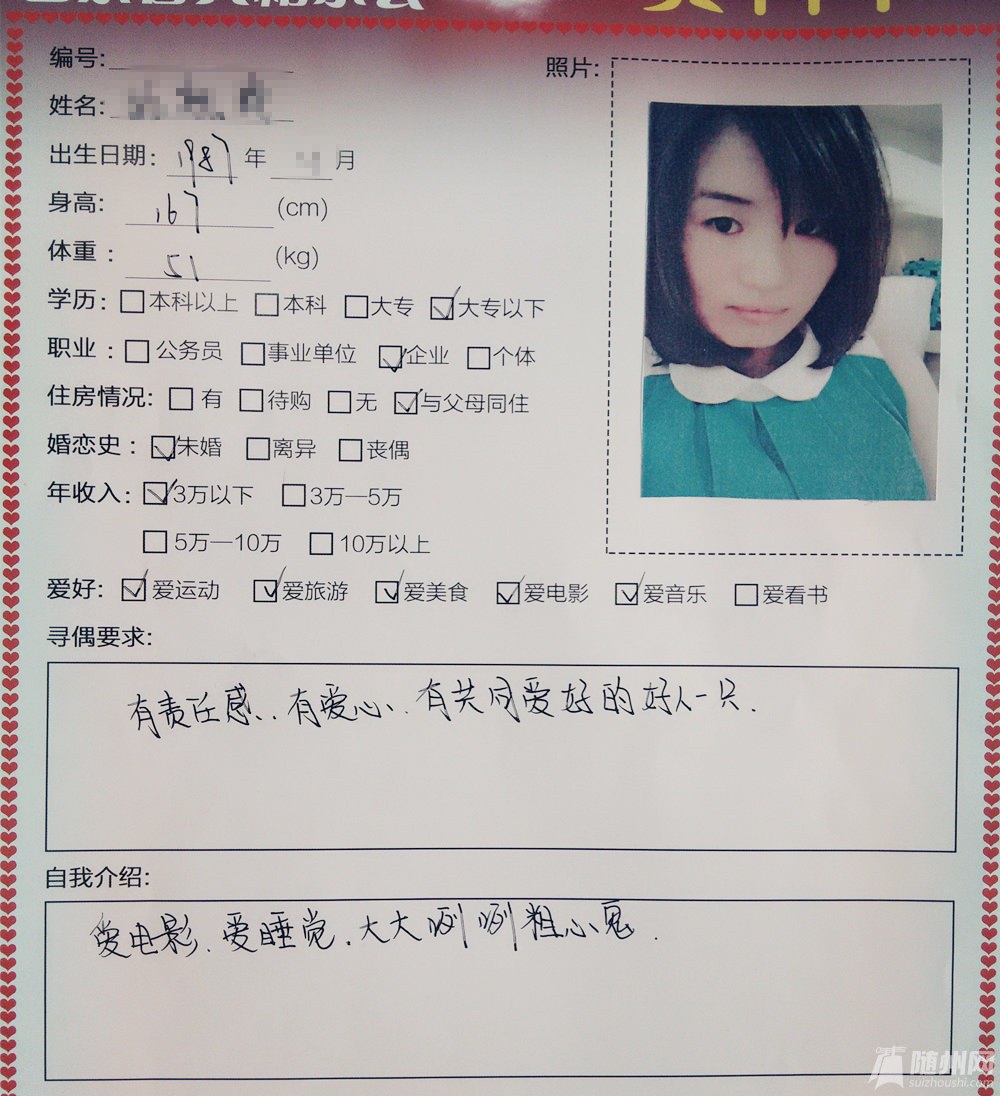 编号:
照片:
姓名:
出生日期: 1987 年 月
身高: 167 (cm)
体重: 51 (kg)
学历: 本科以上 本科 大专 大专以下
职业: 公务员 事业单位 企业 个体
住房情况: 有 待购 无 与父母同住
婚恋史: 未婚 离异 丧偶
年收入: 3万以下 3万—5万
5万—10万 10万以上
爱好: 爱运动 爱旅游 爱美食 爱电影 爱音乐 爱看书
寻偶要求:
有责任感.有爱心.有共同爱好的好人一只.
自我介绍:
爱电影.爱睡觉.大大咧咧粗心鬼.
随州网
suizhoushi.com